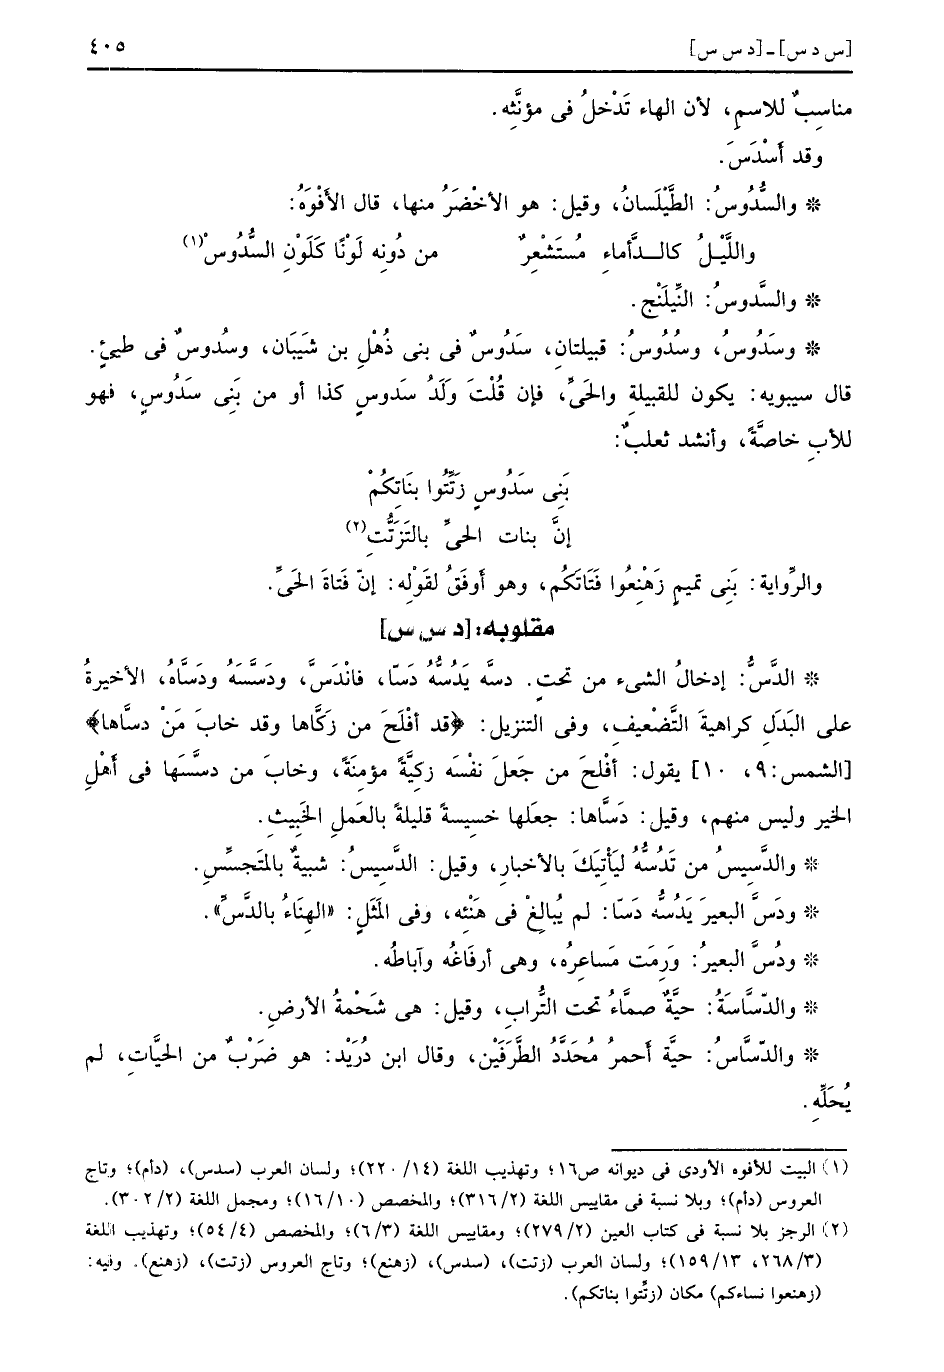 [س د س] ـ [د س س] ٤٠٥
مناسِبٌ للاسمِ، لأن الهاء تَدْخلُ فى مؤنَّثِه.
وقد أَسْدَسَ.
* والسُّدُوسُ: الطَّيْلَسانُ، وقيل: هو الأخْضَرُ منها، قال الأفْوَهُ:
واللَّيْلُ كالدَّأماءِ مُستَشْعِرٌ من دُونِه لَونًا كَلَوْنِ السُّدُوسْ(١)
* والسَّدوسُ: النِّيلَنْج.
* وسَدُوسُ، وسُدُوسُ: قبيلتانِ، سَدُوسٌ فى بنى ذُهْلِ بن شَيَبَان، وسُدوسٌ فى طيئٍ.
قال سيبويه: يكون للقبيلةِ والحَىِّ، فإن قُلْتَ وَلَدُ سَدوسٍ كذا أو من بَنِى سَدُوسٍ، فهو
للأبِ خاصَّةً، وأنشد ثعلبٌ:
بَنِى سَدُوسٍ زَتِّتُوا بنَاتِكُمْ
إنَّ بنات الحىِّ بالتَزَتُّتِ(٢)
والرِّواية: بَنِى تميمٍ زَهْنِعُوا فَتَاتَكُم، وهو أوفَقُ لقَوْلِه: إنّ فَتاةَ الحَىِّ.
مقلوبه: [د س س]
* الدَّسُّ: إدخالُ الشىء من تحتِ. دسَّه يَدُسُّهُ دَسّا، فانْدَسَّ، ودَسَّسَهُ ودَسَّاه، الأخيرةُ
على البَدَلِ كراهيةَ التَّضْعيفِ، وفى التنزيل: ﴿قد أفْلَحَ من زَكَّاها وقد خابَ مَنْ دسَّاها﴾
[الشمس: ٩، ١٠] يقول: أفْلحَ من جَعلَ نفْسَه زكيَّةً مؤمنَةً، وخابَ من دسَّسَها فى أَهْلِ
الخير وليس منهم، وقيل: دَسَّاها: جعَلها خسيسةً قليلةً بالعَملِ الخَبيثِ.
* والدَّسِيسُ من تَدُسُّهُ ليَأْتيَكَ بالأخبارِ، وقيل: الدَّسيسُ: شبيةٌ بالمُتَجسِّسِ.
* ودَسَّ البعيرَ يَدُسُّه دَسّا: لم يُبالِغْ فى هَنْئِه، وفى المَثَلِ: «الهِناءُ بالدَّسِّ».
* ودُسَّ البعيرُ: وَرِمَت مَساعِرُه، وهى أرفَاغُه وآباطُه.
* والدّسَّاسَةُ: حيَّةٌ صمَّاءُ تحت التُّرابِ، وقيل: هى شَحْمةُ الأرضِ.
* والدّسَّاسُ: حيَّة أَحمرُ مُحَدَّدُ الطَّرَفَيْنِ، وقال ابن دُرَيْد: هو ضَرْبٌ من الحيَّاتِ، لم
يُحَلِّهِ.
(١) البيت للأفوه الأودى فى ديوانه ص١٦؛ وتهذيب اللغة (١٤/ ٢٢٠)؛ ولسان العرب (سدس)، (دأم)؛ وتاج
العروس (دأم)؛ وبلا نسبة فى مقاييس اللغة (٣١٦/٢)؛ والمخصص (١٦/١٠)؛ ومجمل اللغة (٣٠٢/٢).
(٢) الرجز بلا نسبة فى كتاب العين (٢٧٩/٢)؛ ومقاييس اللغة (٦/٣)؛ والمخصص (٥٤/٤)؛ وتهذيب اللغة
(٢٦٨/٣، ١٥٩/١٣)؛ ولسان العرب (زتت)، (سدس)، (زهنع)؛ وتاج العروس (زتت)، (زهنع). وفيه:
(زهنعوا نساءكم) مكان (زتِّتوا بناتكم).